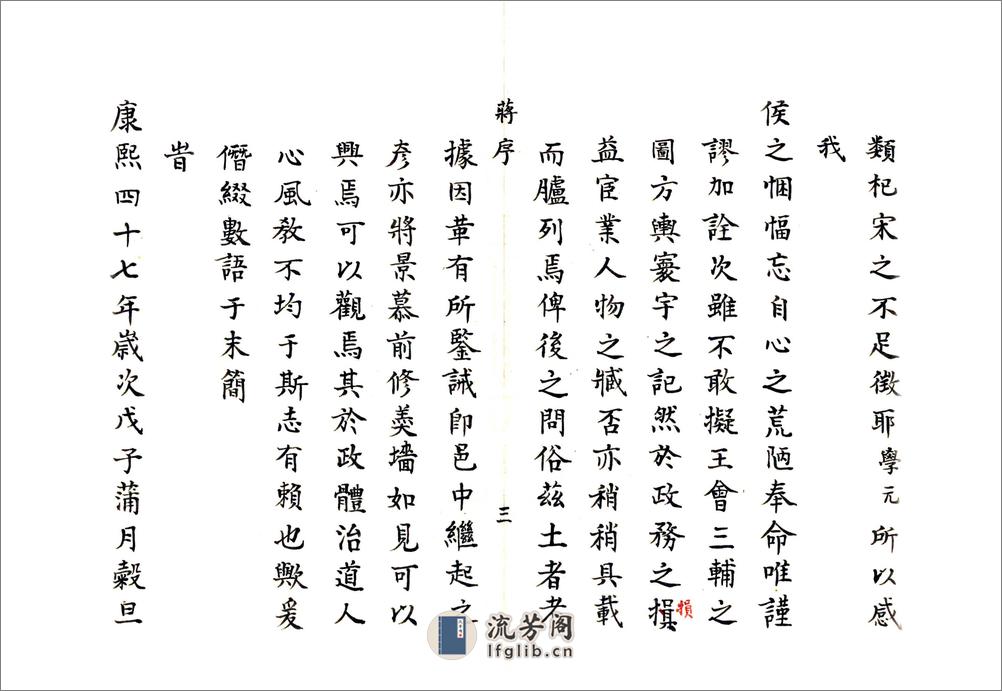 類杞宋之不足徵耶學元所以感
我
侯之悃愊忘自心之荒陋奉命唯謹
謬加詮次雖不敢擬王會三輔之
圖方輿寰宇之記然於政務之損
損
益宦業人物之臧否亦稍稍具載
而臚列焉俾後之問俗茲土者考
蔣序
三
據因革有所鑒誡即邑中繼起之
彥亦將景慕前修羹墻如見可以
興焉可以觀焉其於政體治道人
心風教不均于斯志有賴也歟爰
僭綴數語于末簡
旹
康熙四十七年歲次戊子蒲月穀旦
流芳阁
lfglib.cn